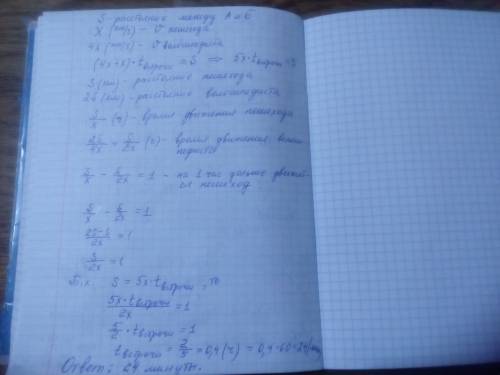 S - расстояние между А и Б
x (км/ч) - v пешехода
4x (км/ч) - v велосипедиста
(4x+x)·tвстречи = S ⇒ 5x·tвстречи = S
S (км) - расстояние пешехода
2S (км) - расстояние велосипедиста
S/x (ч) - время движения пешехода
2S/4x = S/2x (ч) - время движения велоси-
педиста
S/x - S/2x = 1 - на 1 час дольше
пешеход
S/x - S/2x = 1
2S-S/2x = 1
S/2x = 1
Т.к. S = 5x·tвстречи, то
5x·tвстречи/2x = 1
5/2·tвстречи = 1
tвстречи = 2/5 = 0,4 (ч) = 0,4·60 = 24 (мин)
Ответ: 24 минуты.